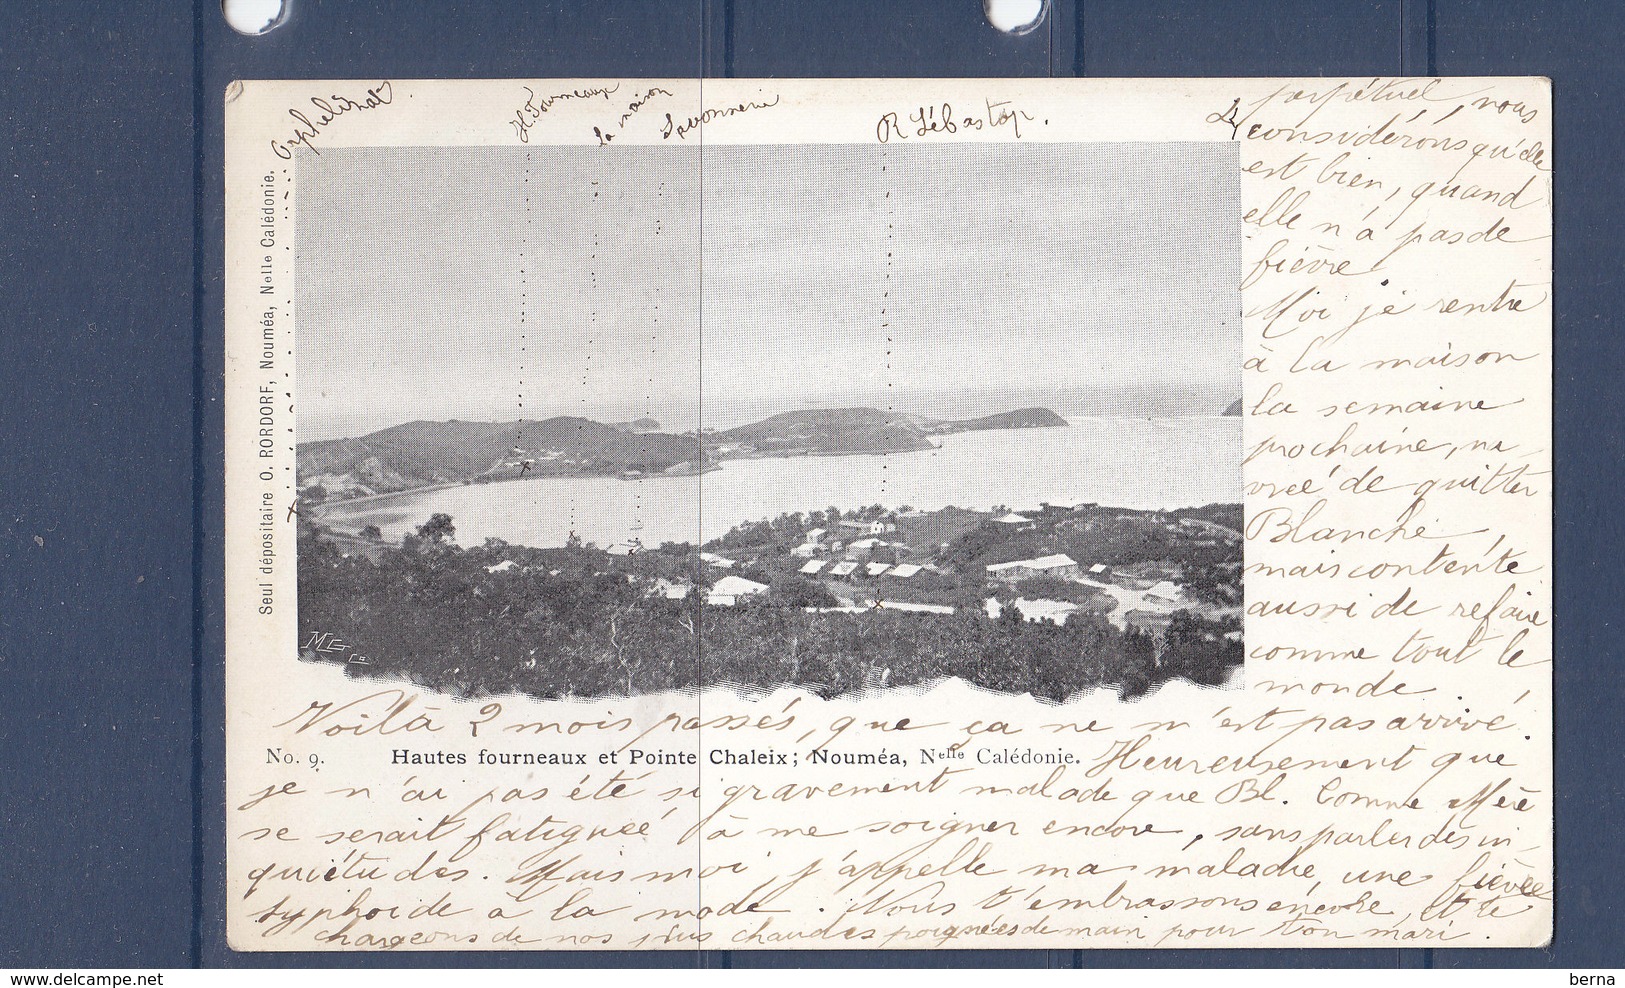 Orphelinat
H. Fourneaux
La maison
Savonnerie
R Sébastop.
perpétuel, nous
considérons qu'elle
est bien, quand
elle n'a pas de
fièvre
Moi je rentre
à la maison
la semaine
prochaine, na-
vrée de quitter
Blanche,
mais contente
aussi de refaire
comme tout le
monde.
Seul dépositaire O. RORDORF, Nouméa, Nelle Calédonie.
MG Co
Voilà 2 mois passés, que ça ne m'est pas arrivé.
No. 9. Hautes fourneaux et Pointe Chaleix; Nouméa, Nelle Calédonie.
Heureusement que
je n'ai pas été si gravement malade que Bl. Comme Mère
se serait fatiguée à me soigner encore, sans parler des in-
quiétudes. Mais moi, j'appelle ma maladie, une fièvre
typhoïde à la mode. Nous t'embrassons encore, et te
chargeons de nos plus chaudes poignées de main pour ton mari.
berna